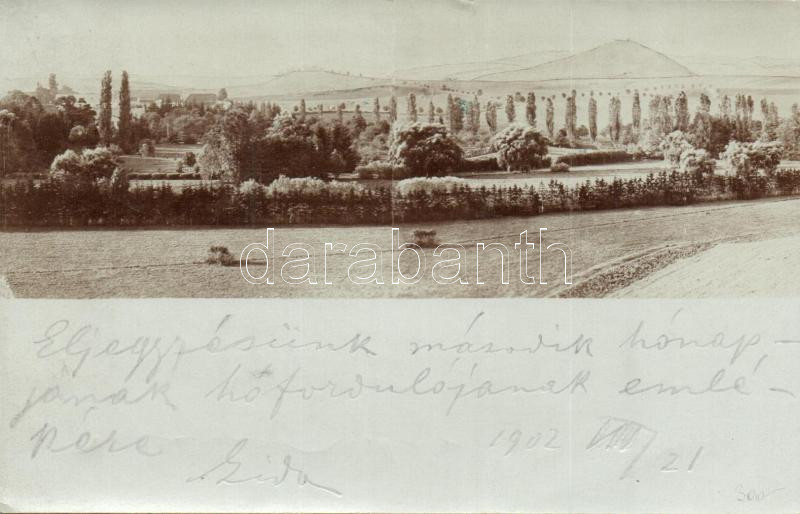 darabanth
Eljegyzésünk második hónap-
jának hófordulójának emlé-
kére
Gida
1902 VIII/21
300